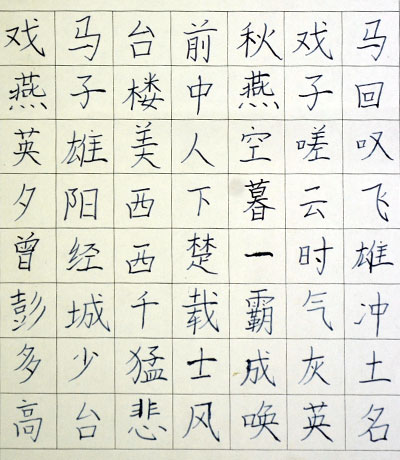 戏马台前秋戏马
燕子楼中燕子回
英雄美人空嗟叹
夕阳西下暮云飞
曾经西楚一时雄
彭城千载霸气冲
多少猛士成灰土
高台悲风唤英名